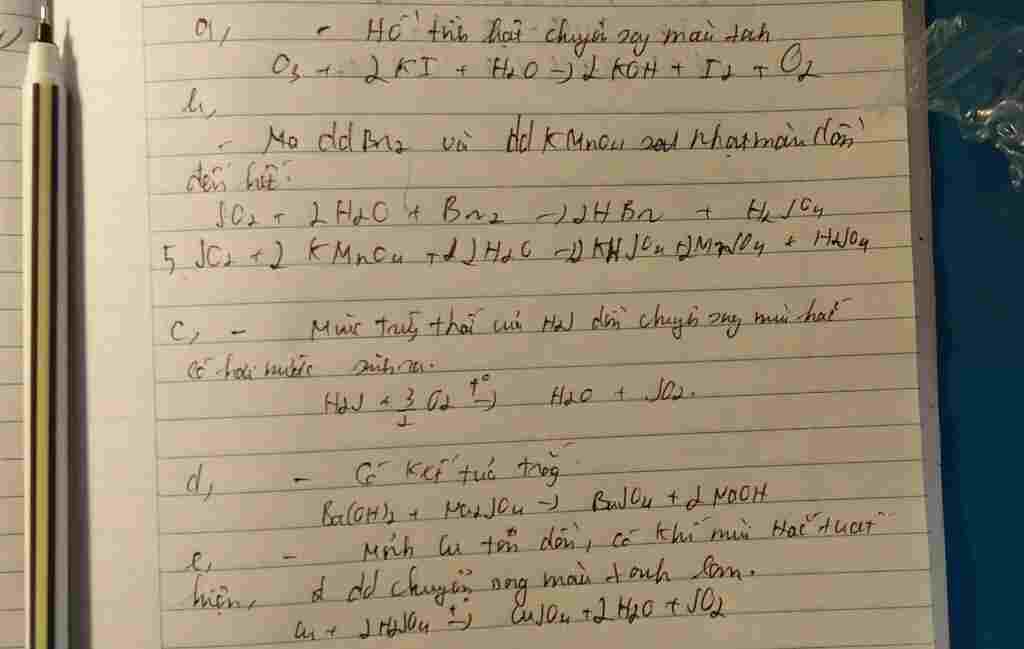 a, - Hồ tinh bột chuyển sang màu xanh
O3 + 2KI + H2O → 2KOH + I2 + O2
b,
- Màu dd Br2 và dd KMnO4 nhạt màu dần
đến hết.
SO2 + 2H2O + Br2 → 2HBr + H2SO4
5 SO2 + 2 KMnO4 + 2H2O → 2KHSO4 + 2MnSO4 + H2SO4
c, - Mùi trứng thối của H2S dần chuyển sang mùi hắc
có hơi nước sinh ra.
H2S + 3/2 O2 t° → H2O + SO2.
d, - Có kết tủa trắng
Ba(OH)2 + Na2SO4 → BaSO4 + 2 NaOH
e, - Mảnh Cu tan dần, có khí mùi Hắc xuất
hiện, dd chuyển sang màu xanh lam.
Cu + 2H2SO4 t° → CuSO4 + 2H2O + SO2